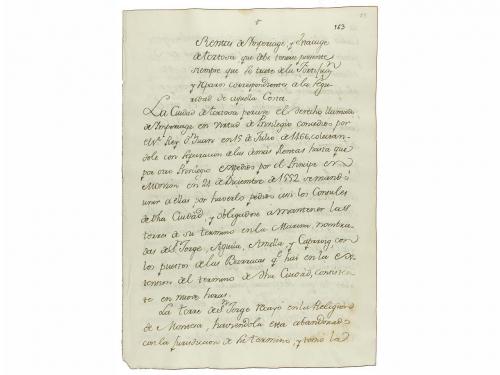 163
Rentas de Imposage, y Anauge
de tortosa que debe tenerse presente
siempre que se trate de la Fortificn
y Reparos correspondientes a la segu-
ridad de aquella Costa.
La Ciudad de tortosa percive el derecho llamado
de Imposage en virtud de Privilegio concedido por
el Sr. Rey Dn. Juan en 15 de Julio de 1466, cobran-
dole con separacion de las demas Rentas hasta que
por otro Privilegio expedido por el Principe en
Monzon en 24 de Diciembre de 1552 se mandó
unir a ellas por haverlo pedido assi los Consules
de dha Ciudad, y obligadose a mantener las
torres de su termino en la Marina nombra-
das de Sn. Jorge, Aguila, Amella y Caproig, con
los puestos de las Barracas qe. hai en la ex-
tension del termino de dha Ciudad, consisten-
te en nueve horas.
La torre de Sn. Jorge recayó en la Religion
de Montesa, haviendola esta abandonado
con la jurisdicion de su termino, y tomó la